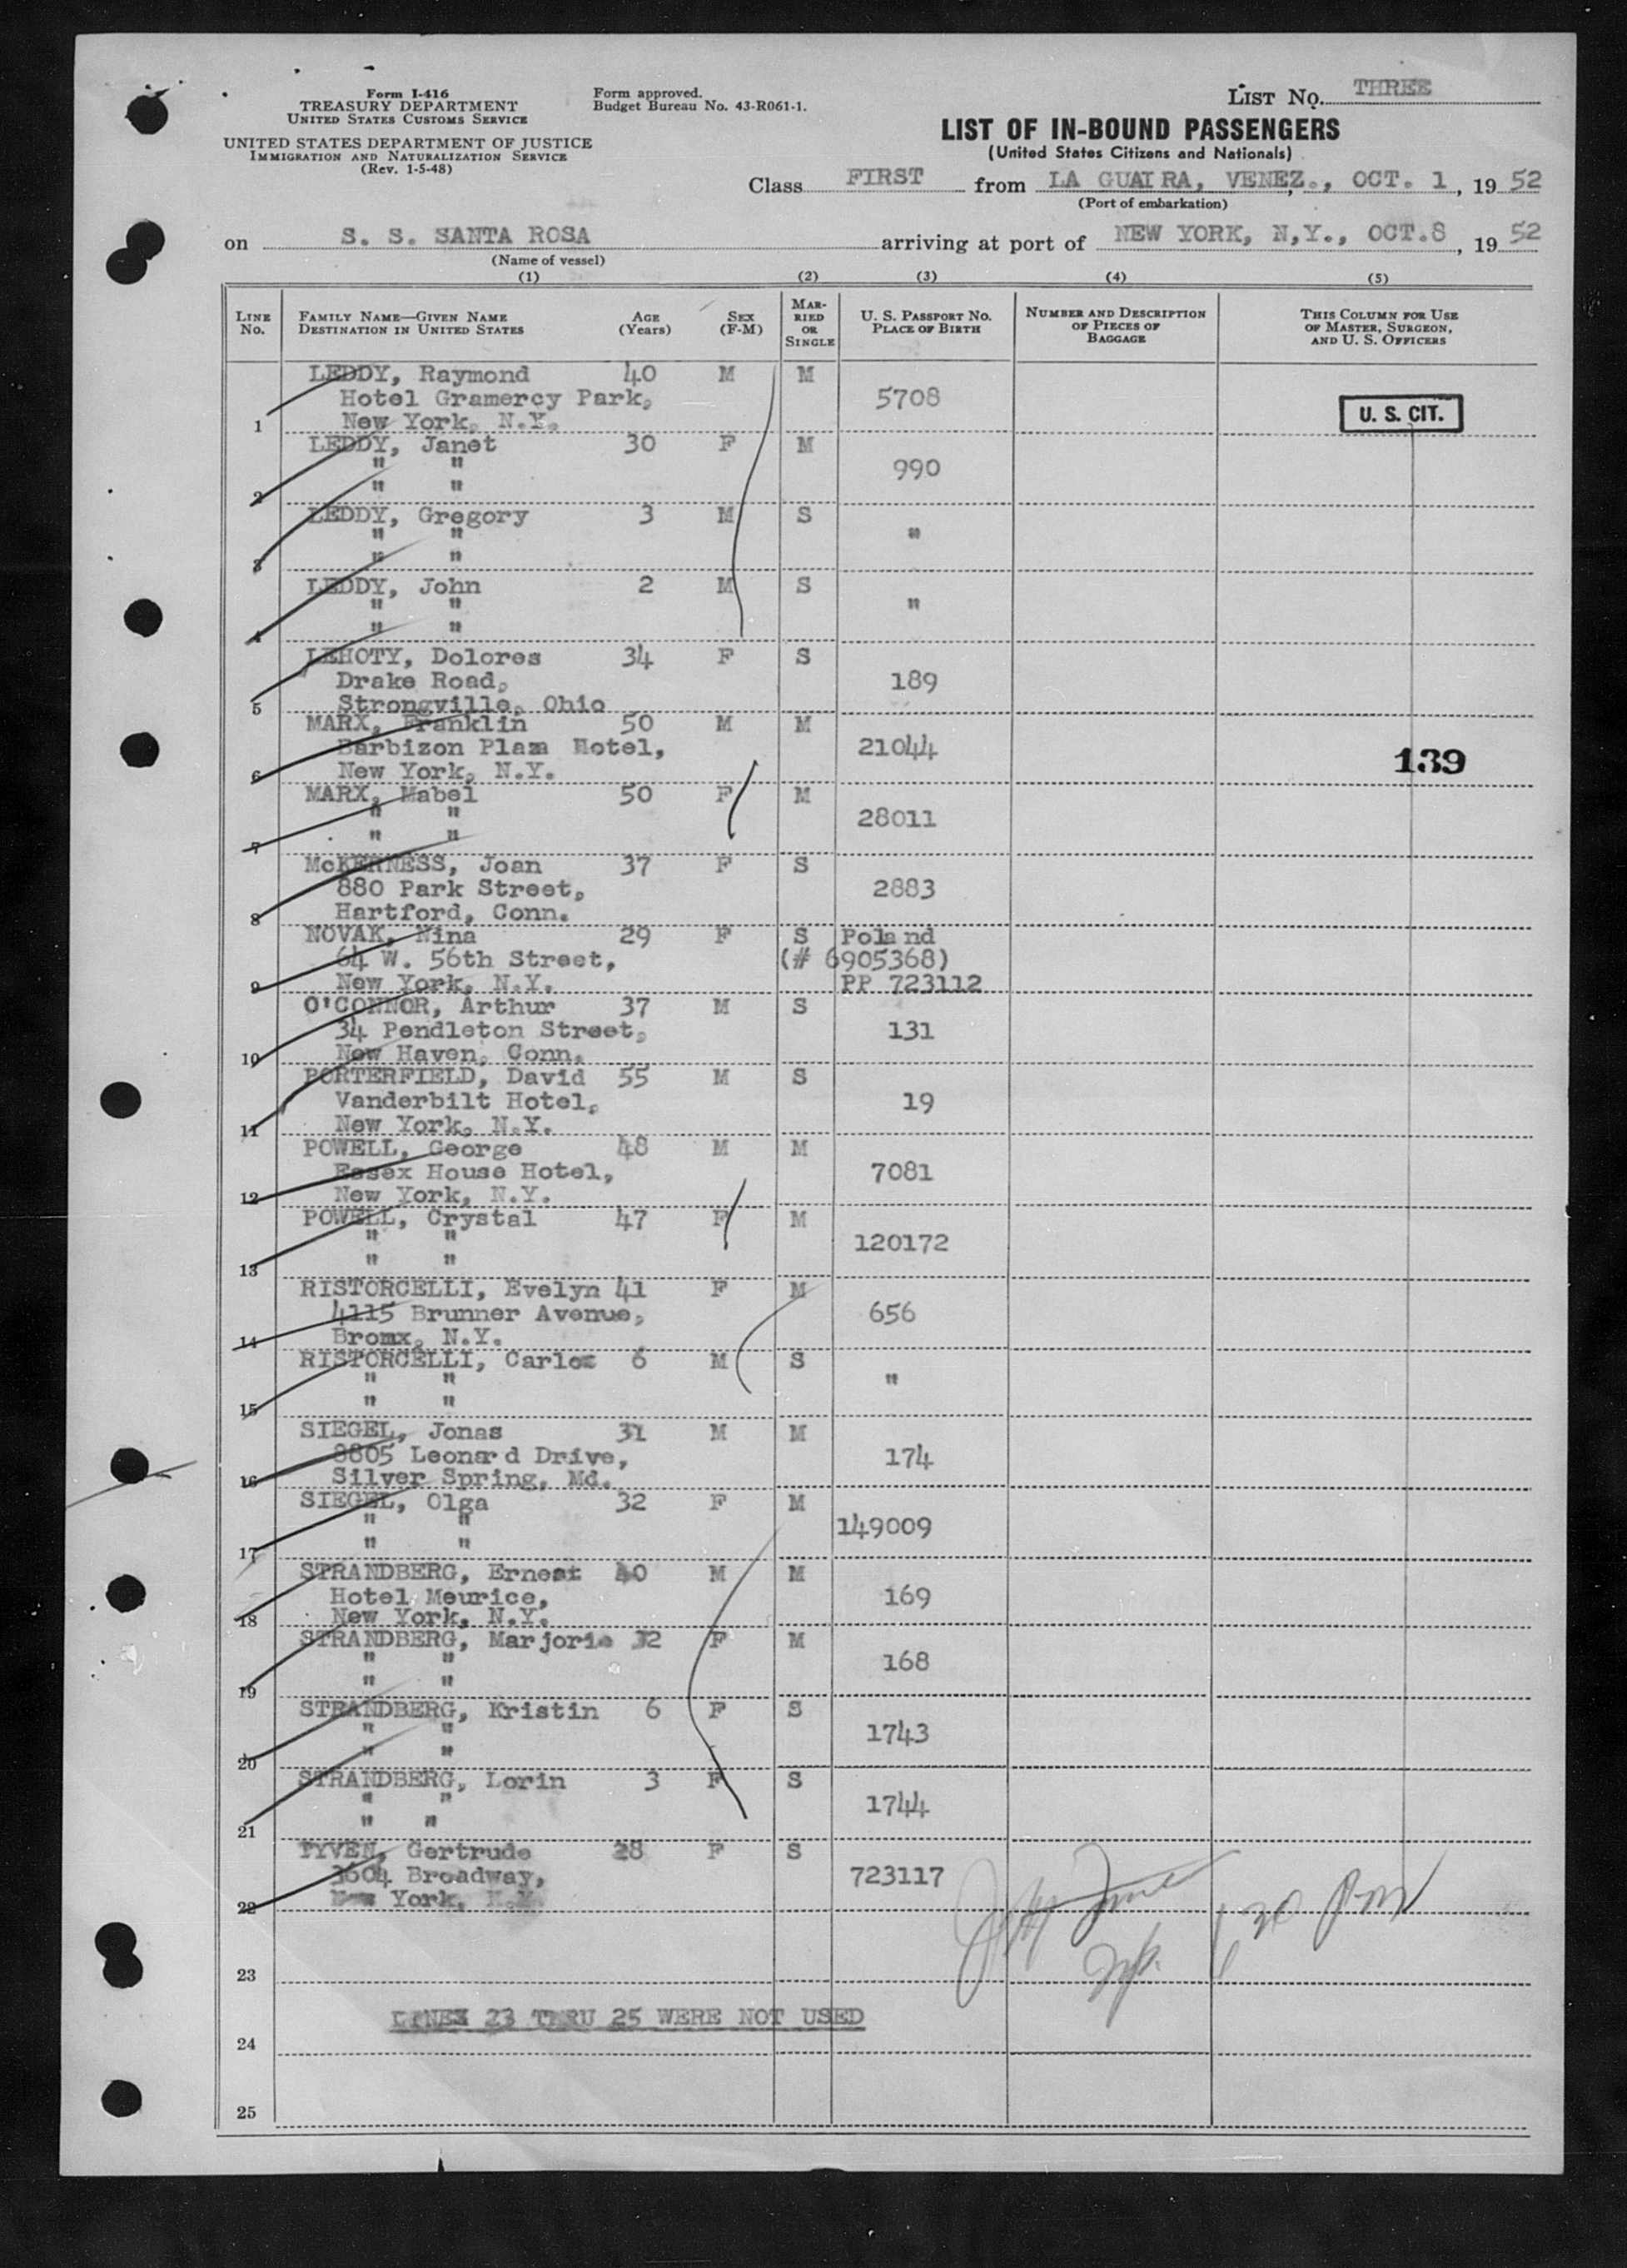 Form I-416
TREASURY DEPARTMENT
UNITED STATES CUSTOMS SERVICE
UNITED STATES DEPARTMENT OF JUSTICE
IMMIGRATION AND NATURALIZATION SERVICE
(Rev. 1-5-48)
Form approved.
Budget Bureau No. 43-R061-1.
LIST No. THREE
LIST OF IN-BOUND PASSENGERS
(United States Citizens and Nationals)
Class FIRST from LA GUAIRA, VENEZ., OCT. 1, 19 52
(Port of embarkation)
on S. S. SANTA ROSA arriving at port of NEW YORK, N,Y., OCT.8, 19 52
(Name of vessel)
(1) (2) (3) (4) (5)
LINE No. FAMILY NAME—GIVEN NAME DESTINATION IN UNITED STATES AGE (Years) SEX (F-M) MARRIED OR SINGLE U. S. PASSPORT NO. PLACE OF BIRTH NUMBER AND DESCRIPTION OF PIECES OF BAGGAGE THIS COLUMN FOR USE OF MASTER, SURGEON, AND U. S. OFFICERS
LEDDY, Raymond 40 M M
Hotel Gramercy Park, 5708 U. S. CIT.
1 New York, N.Y.
LEDDY, Janet 30 F M
" " 990
2 " "
LEDDY, Gregory 3 M S
" " "
3 " "
LEDDY, John 2 M S
" " "
4 " "
LEHOTY, Dolores 34 F S
Drake Road, 189
5 Strongville, Ohio
MARX, Franklin 50 M M
Barbizon Plaza Hotel, 21044 139
6 New York, N.Y.
MARX, Mabel 50 F M
" " 28011
7 " "
McKERNESS, Joan 37 F S
880 Park Street, 2883
8 Hartford, Conn.
NOVAK, Nina 29 F S Poland
64 W. 56th Street, (# 6905368)
9 New York, N.Y. PP 723112
O'CONNOR, Arthur 37 M S
34 Pendleton Street, 131
10 New Haven, Conn.
PORTERFIELD, David 55 M S
Vanderbilt Hotel, 19
11 New York, N.Y.
POWELL, George 48 M M
Essex House Hotel, 7081
12 New York, N.Y.
POWELL, Crystal 47 F M
" " 120172
13 " "
RISTORCELLI, Evelyn 41 F M
4115 Brunner Avenue, 656
14 Bronx, N.Y.
RISTORCELLI, Carlos 6 M S
" " "
15 " "
SIEGEL, Jonas 31 M M
8805 Leonard Drive, 174
16 Silver Spring, Md.
SIEGEL, Olga 32 F M
" " 149009
17 " "
STRANDBERG, Ernest 40 M M
Hotel Meurice, 169
18 New York, N.Y.
STRANDBERG, Marjorie 32 F M
" " 168
19 " "
STRANDBERG, Kristin 6 F S
" " 1743
20 " "
STRANDBERG, Lorin 3 F S
" " 1744
21 " "
TYVEN, Gertrude 28 F S
3604 Broadway, 723117
22 New York, N.Y.
30 PM
23
LINES 23 THRU 25 WERE NOT USED
24
25